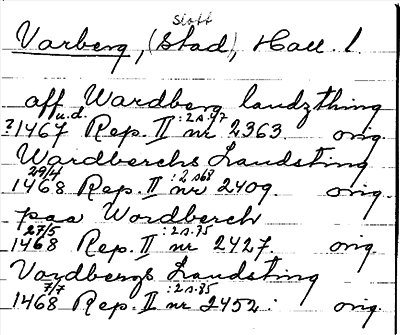 Slott
Varberg, (Stad), Hall. l.
aff Wardberg landzthing
u.d. :2 s.47
?1467 Rep. II nr 2363. orig.
Wardberchs Landsting
29/4 :2 s68
1468 Rep. II nr 2409. orig.
paa Wordberch
27/5 :2 s.75
1468 Rep. II nr 2427. orig.
Vardbergs Landsting
7/7 :2 s.85
1468 Rep. II nr 2452. orig.